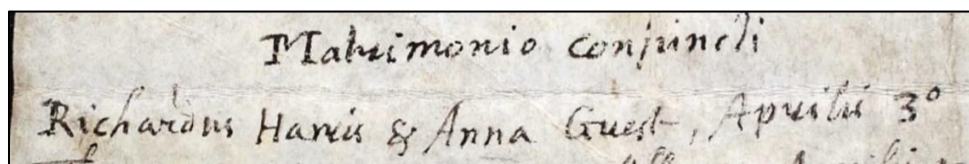 Matrimonio conjuncti
Richardus Harris & Anna Guest, Aprilis 3°